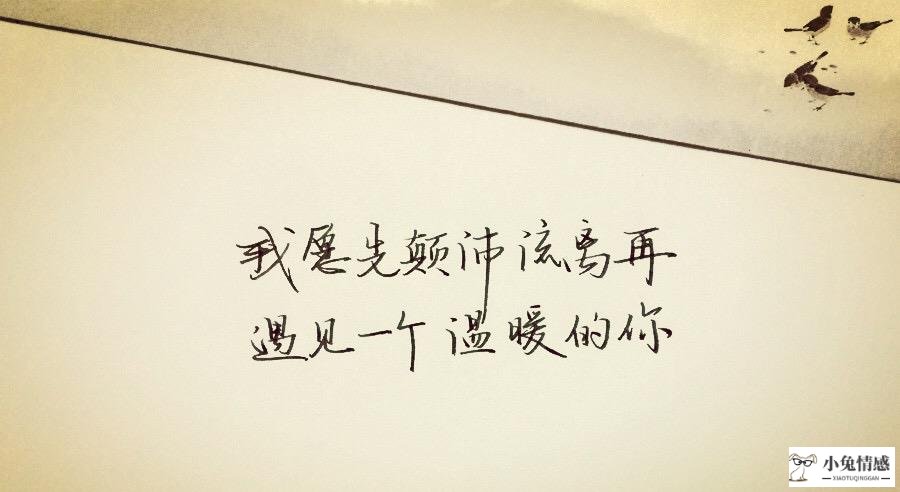 我愿先颠沛流离再
遇见一个温暖的你
小兔情感
XIAOTUQINGGAN